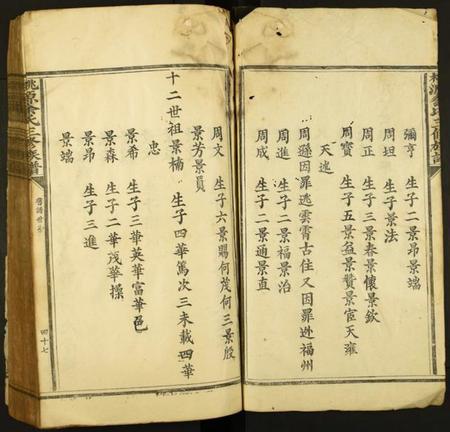 彌亨 生子二景昂景端
周坦 生子景法
周正 生子三景春景懷景欽
周寳 生子五景益景贊景宦天雍
天述
周遜因罪逃雲霄古住又因罪迯福州
周進 生子二景福景治
周成 生子二景通景直
周文 生子六景賜何茂何三景殷
景芳景員
十二世祖景楠 生子四華篤次三未載四華
忠
景希 生子三華英華富華邑
景森 生子二華茂華操
景昂 生子三進
景端
桃源 氏三修族譜
四十七